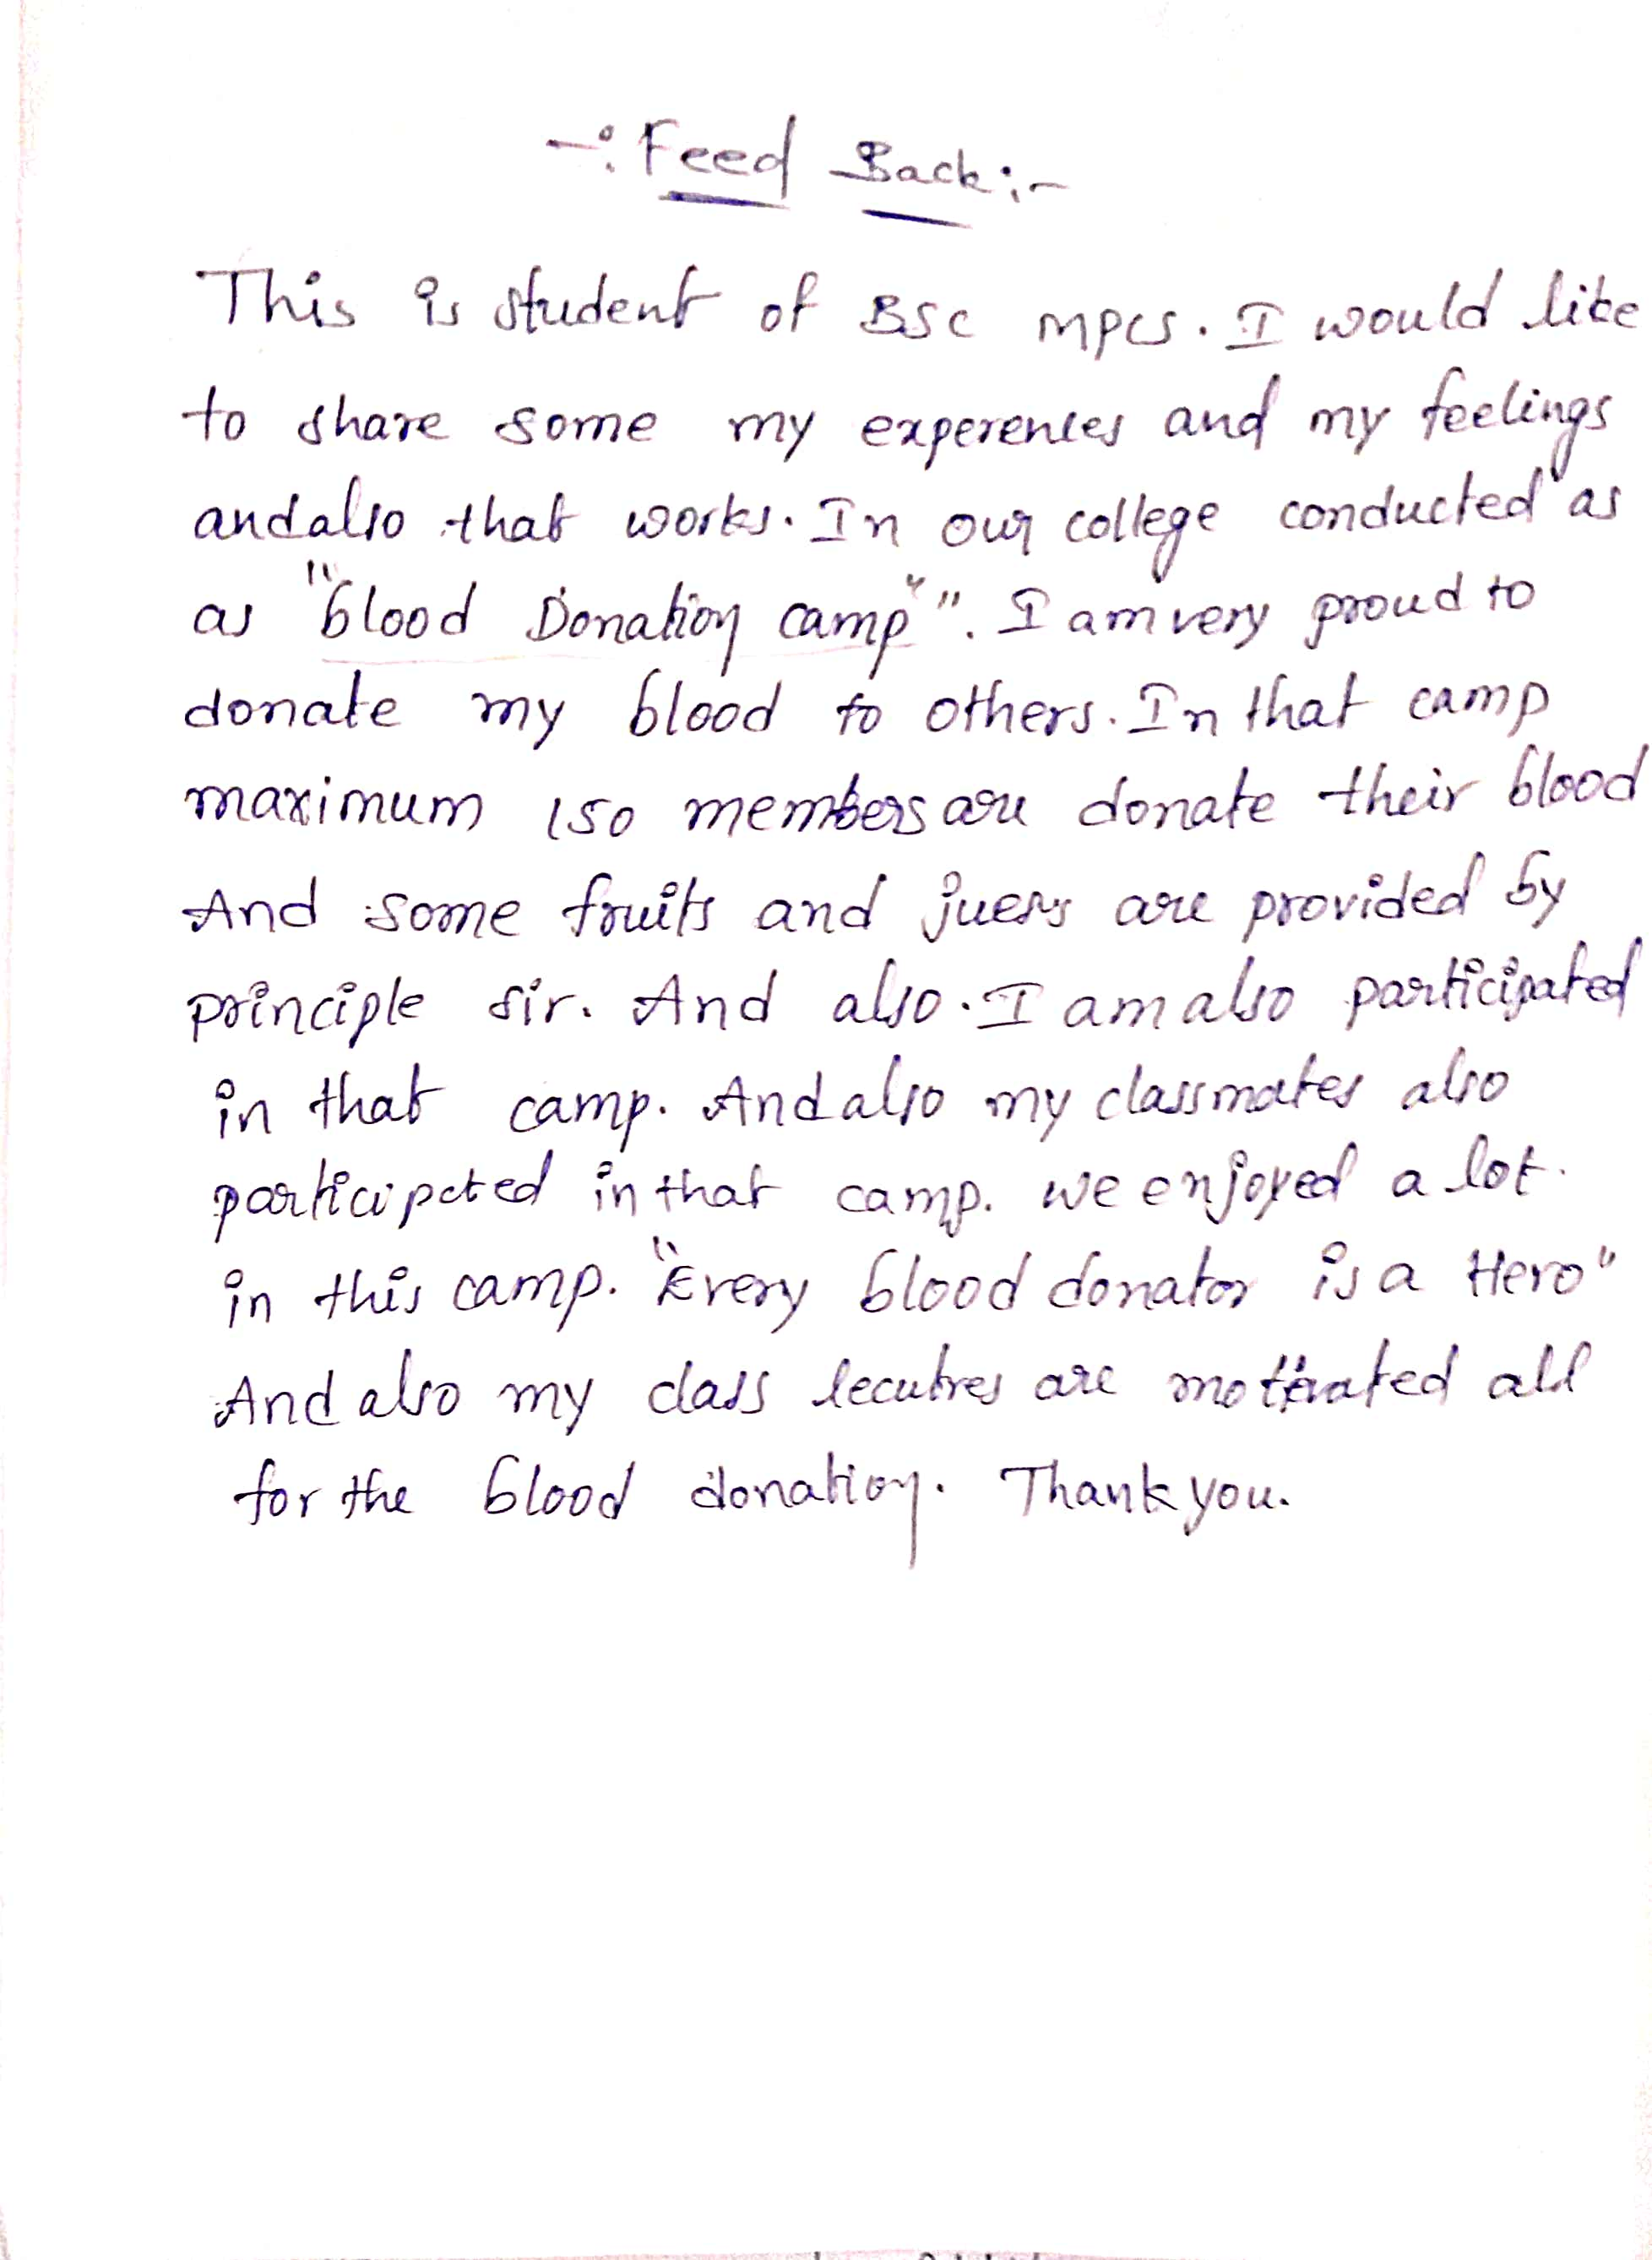 -: Feed Back :-
This is student of BSC MPCS. I would like
to share some my experences and my feelings
andalso that works. In our college conducted as
as "blood Donation camp"". I am very proud to
donate my blood to others. In that camp
maximum 150 members are donate their blood
And some fruits and are provided by
principle sir. And also. I am also participated
in that camp. And also my classmates also
participated in that camp. we enjoyed a lot.
in this camp. "Every blood donator is a Hero"
And also my class lecutres are motivated all
for the blood donation. Thank you.